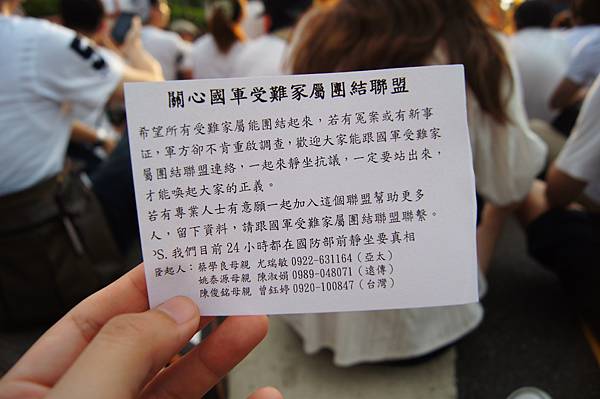 關心國軍受難家屬團結聯盟
希望所有受難家屬能團結起來，若有冤案或有新事
證，軍方卻不肯重啟調查，歡迎大家能跟國軍受難家
屬團結聯盟連絡，一起來靜坐抗議，一定要站出來，
才能喚起大家的正義。
若有專業人士有意願一起加入這個聯盟幫助更多
人，留下資料，請跟國軍受難家屬團結聯盟聯繫。
PS. 我們目前 24 小時都在國防部前靜坐要真相
發起人：蔡學良母親 尤瑞敏 0922-631164（亞太）
姚泰源母親 陳淑娟 0989-048071（遠傳）
陳俊銘母親 曾鈺婷 0920-100847（台灣）